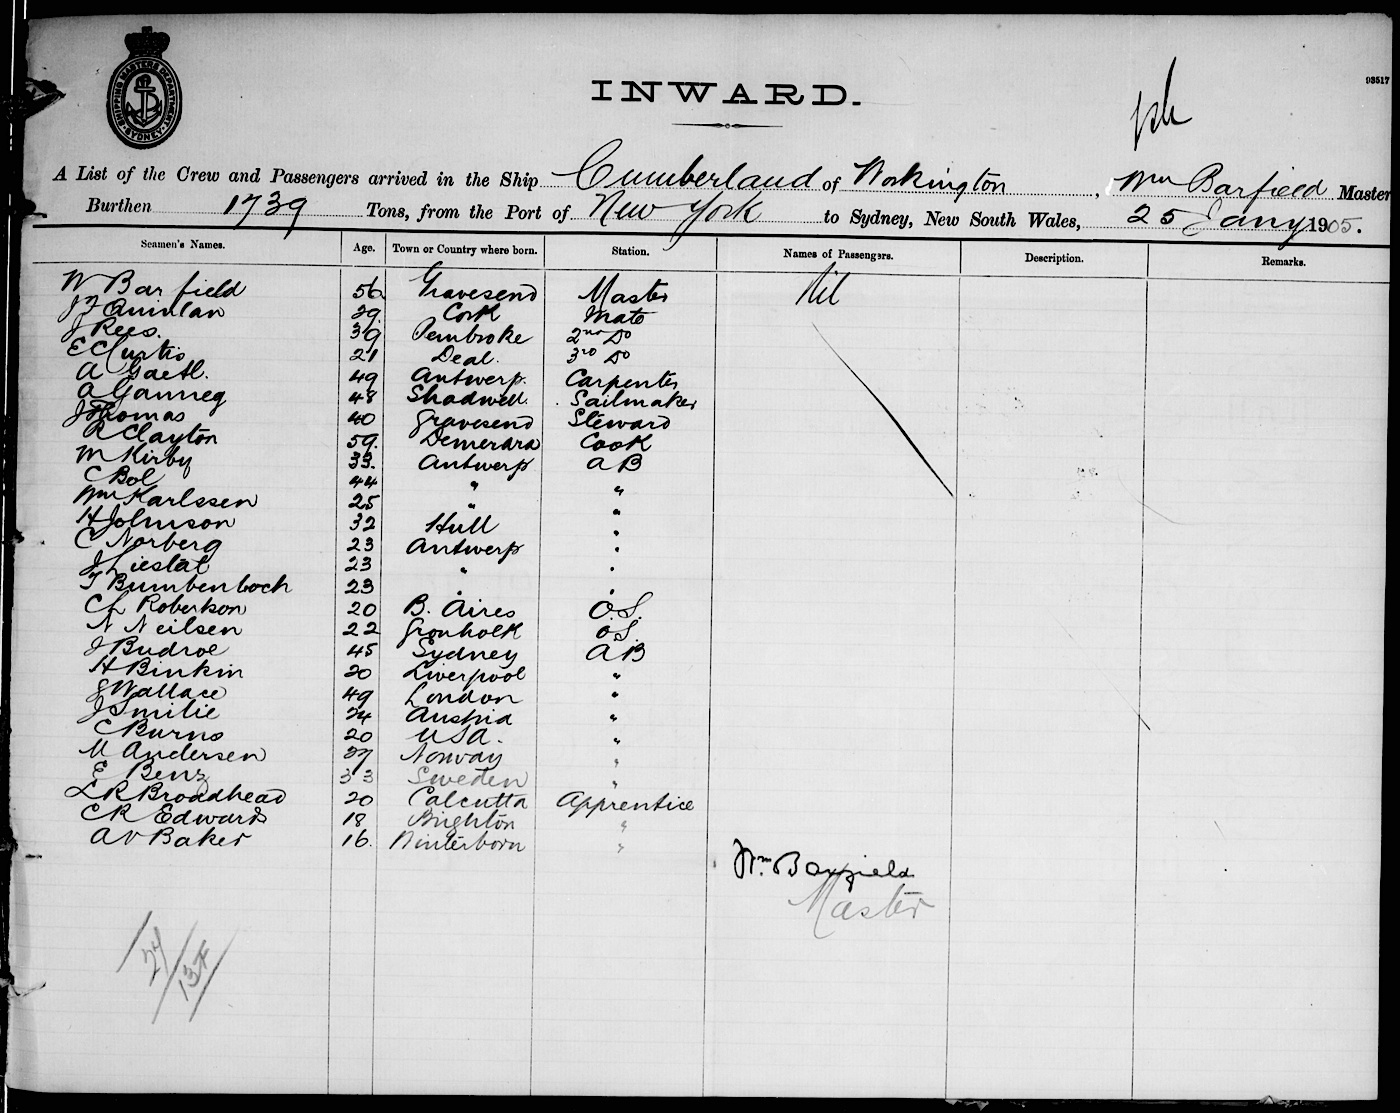 SHIPPING MASTERS DEPARTMENT. SYDNEY.
93517
INWARD.
A List of the Crew and Passengers arrived in the Ship Cumberland of Workington, Wm Barfield Master
Burthen 1739 Tons, from the Port of New York to Sydney, New South Wales, 25 Jany 1905.
Seamen's Names. Age. Town or Country where born. Station. Names of Passengers. Description. Remarks.
W Barfield 56 Gravesend Master Nil
J F Quinlan 29 Cork Mate
J Rees. 39 Pembroke 2nd Do
E Curtis 21 Deal. 3rd Do
A Gaetl. 49 Antwerp. Carpenter
A Ganneg 48 Shadwell. Sailmaker
J Thomas 40 Gravesend Steward
R Clayton 59. Demerara Cook
M Kirby 33. Antwerp AB
C Bol 44 " "
Wm Karlssen 25 " "
H Johnson 32 Hull "
C Norberg 23 Antwerp "
J Liestal 23 " "
T Bumbenboch 23 " "
C L Robertson 20 B. Aires O.S.
N Neilsen 22 Gronholk O.S.
J Budroe 45 Sydney AB
H Binkin 20 Liverpool "
J Wallace 49 London "
J Smilie 24 Austria "
C Burns 20 USA. "
M Andersen 37 Norway "
E Benz 33 Sweden "
L R Broadhead 20 Calcutta Apprentice
C R Edwards 18 Brighton "
A V Baker 16. Winterborn "
Wm. Barfield
Master
27/
137/